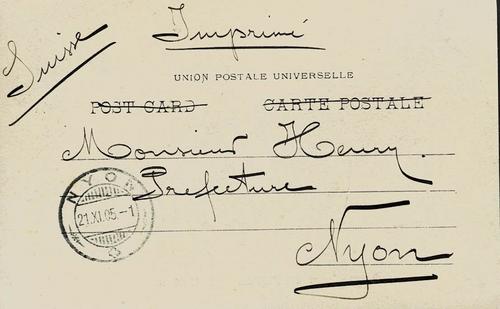 Suisse
Imprimé
UNION POSTALE UNIVERSELLE
POST CARD CARTE POSTALE
Monsieur Henry.
Prefecture
NYON
21.XI.05-1
Nyon